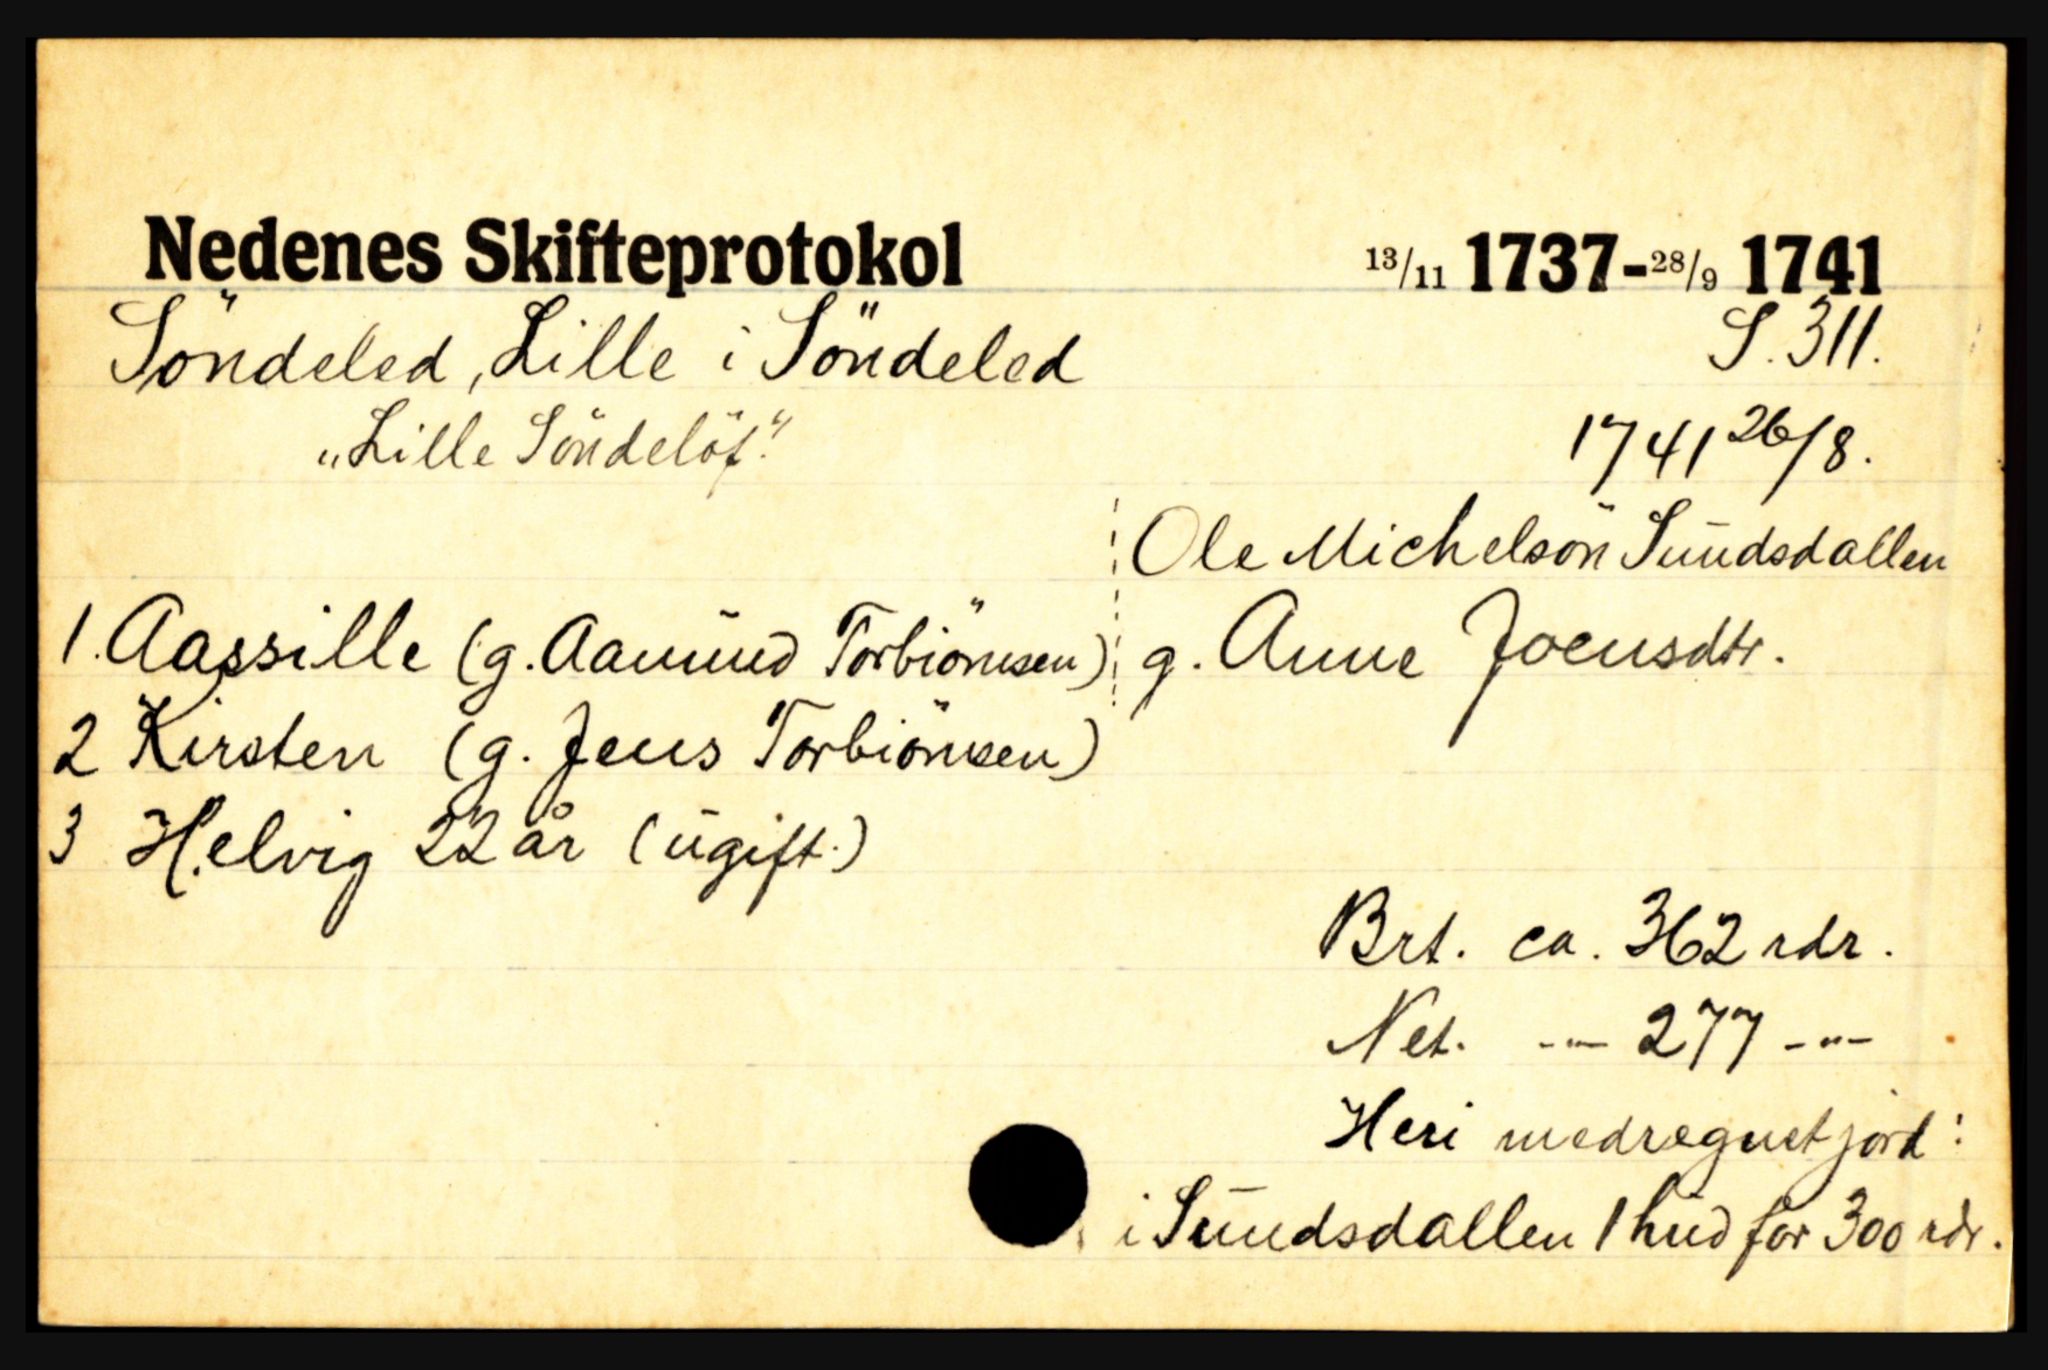 Nedenes Skifteprotokol 13/11 1737-28/9 1741
Söndeled, Lille i Söndeled S. 311.
„Lille Söndelöf.“ 1741 26/8.
Ole Michelsön Sūndsdallen
1. Aassille (g. Aamūnd Torbiörnsen) g. Anne Joensdtr.
2 Kirsten (g. Jens Torbiörnsen)
3 Helvig 22 år (ūgift.)
Brt. ca. 362 rdr.
Net. -"- 277 -"-
Heri medregnet jord:
i Sūndsdallen 1 hūd for 300 rdr.